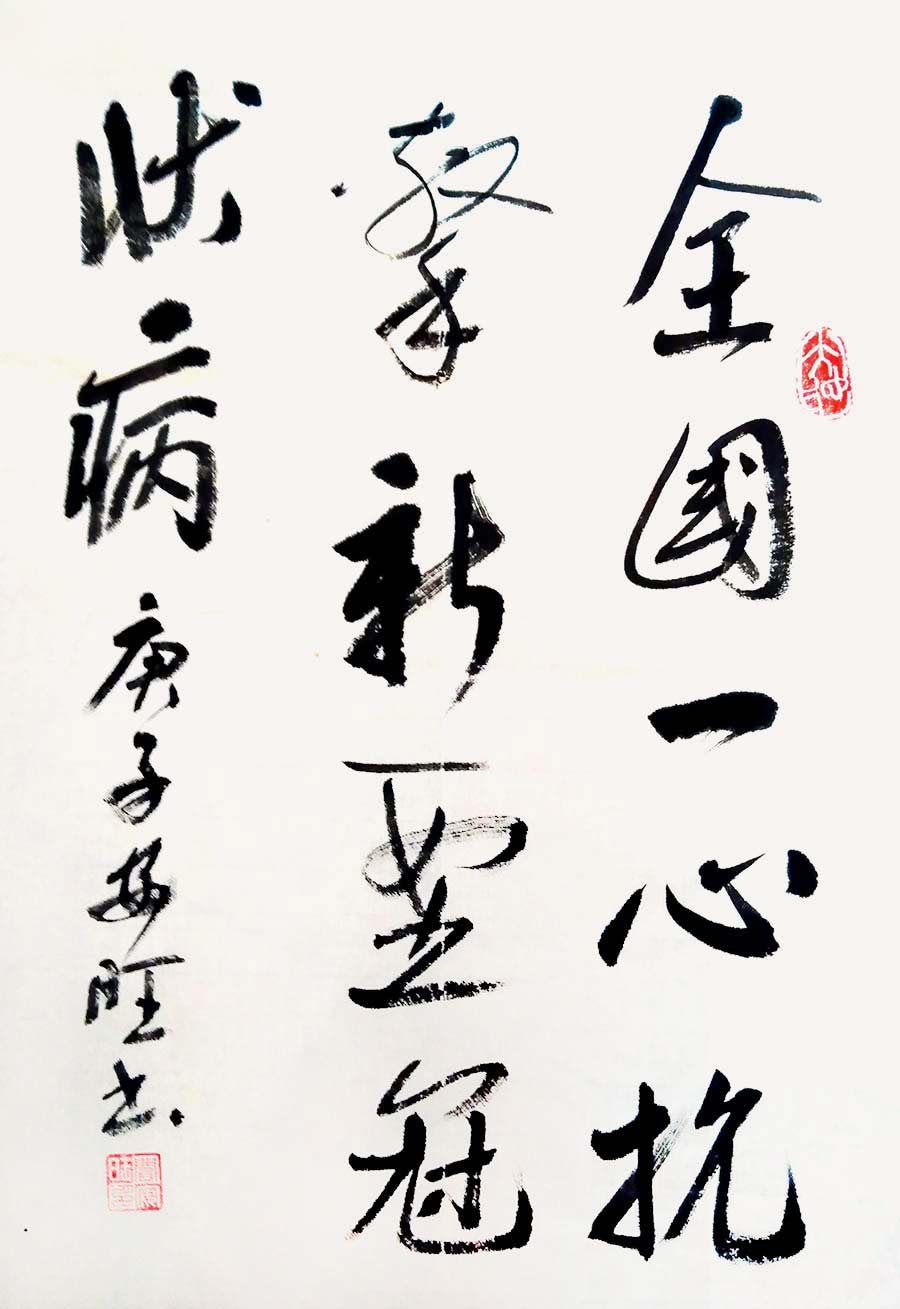 全國一心抗
擊新型冠
狀病 庚子旺书